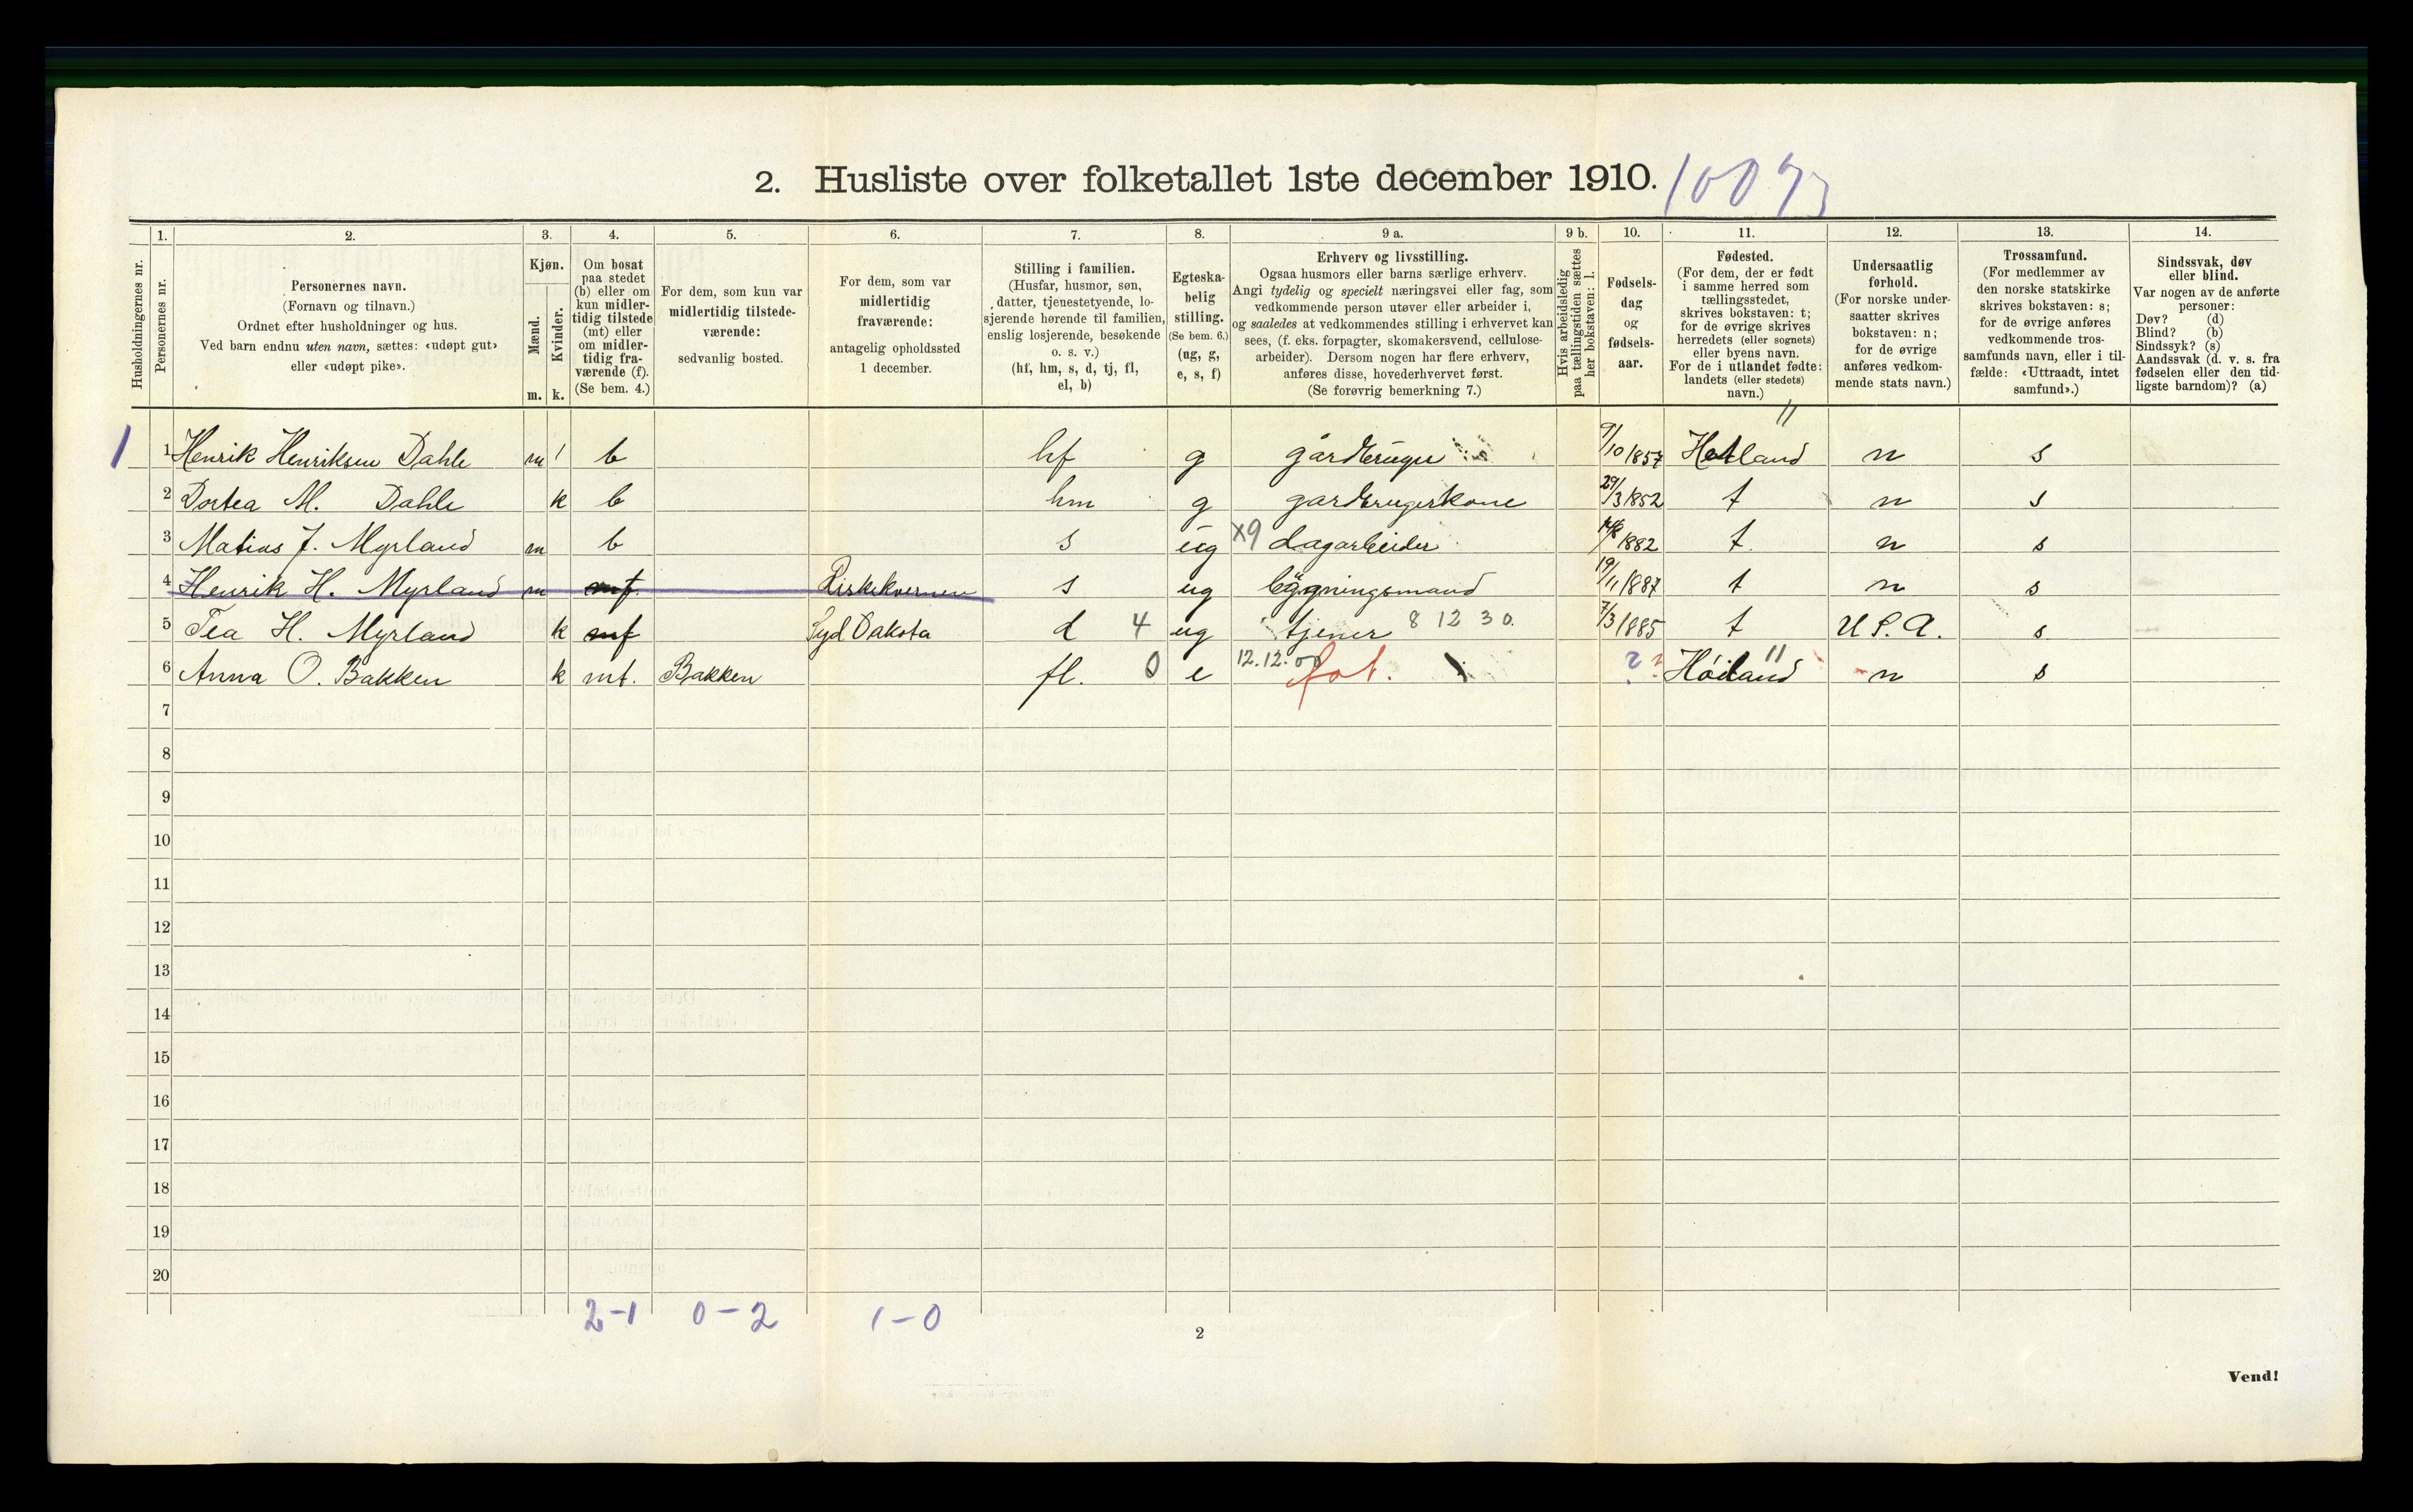 2. Husliste over folketallet 1ste december 1910.
1. 2. 3. 4. 5. 6. 7. 8. 9 a. 9 b. 10. 11. 12. 13. 14.
Husholdningernes nr.
Personernes nr.
Personernes navn.
(Fornavn og tilnavn.)
Ordnet efter husholdninger og hus.
Ved barn endnu uten navn, sættes: «udøpt gut»
eller «udøpt pike».
Kjøn.
Mænd.
Kvinder.
m. k.
Om bosat
paa stedet
(b) eller om
kun midler-
tidig tilstede
(mt) eller
om midler-
tidig fra-
værende (f).
(Se bem. 4.)
For dem, som kun var
midlertidig tilstede-
værende:
sedvanlig bosted.
For dem, som var
midlertidig
fraværende:
antagelig opholdssted
1 december.
Stilling i familien.
(Husfar, husmor, søn,
datter, tjenestetyende, lo-
sjerende hørende til familien,
enslig losjerende, besøkende
o. s. v.)
(hf, hm, s, d, tj, fl,
el, b)
Egteska-
belig
stilling.
(Se bem. 6.)
(ug, g,
e, s, f)
Erhverv og livsstilling.
Ogsaa husmors eller barns særlige erhverv.
Angi tydelig og specielt næringsvei eller fag, som
vedkommende person utøver eller arbeider i,
og saaledes at vedkommendes stilling i erhvervet kan
sees, (f. eks. forpagter, skomakersvend, cellulose-
arbeider). Dersom nogen har flere erhverv,
anføres disse, hovederhvervet først.
(Se forøvrig bemerkning 7.)
Hvis arbeidsledig
paa tællingstiden sættes
her bokstaven: l.
Fødsels-
dag
og
fødsels-
aar.
Fødested.
(For dem, der er født
i samme herred som
tællingsstedet,
skrives bokstaven: t;
for de øvrige skrives
herredets (eller sognets)
eller byens navn.
For de i utlandet fødte:
landets (eller stedets)
navn.)
Undersaatlig
forhold.
(For norske under-
saatter skrives
bokstaven: n;
for de øvrige
anføres vedkom-
mende stats navn.)
Trossamfund.
(For medlemmer av
den norske statskirke
skrives bokstaven: s;
for de øvrige anføres
vedkommende tros-
samfunds navn, eller i til-
fælde: «Uttraadt, intet
samfund».)
Sindssvak, døv
eller blind.
Var nogen av de anførte
personer:
Døv? (d)
Blind? (b)
Sindssyk? (s)
Aandssvak (d. v. s. fra
fødselen eller den tid-
ligste barndom)? (a)
1 1 Henrik Henriksen Dahle m 1 b hf g gårdbruger 9/10 1857 Hetland n s
2 Dortea M. Dahle k b hm g gardbrugerkone 29/3 1852 t n s
3 Matias J. Myrland m b s ug X9 dagarbeider 1882 t. n s
4 Henrik H. Myrland m mf. s ug 19/11 1887 t n s
5 Tea H. Myrland k mf Syd Dakota d 4 ug tjener 8 12 30. 7/3 1885 t U S. A. s
6 Anna O. Bakken k mt. Bakken fl. 0 e 12.12.00 fot. ? ? Höiland n s
7
8
9
10
11
12
13
14
15
16
17
18
19
20
2-1 0-2 1-0
2
Vend!